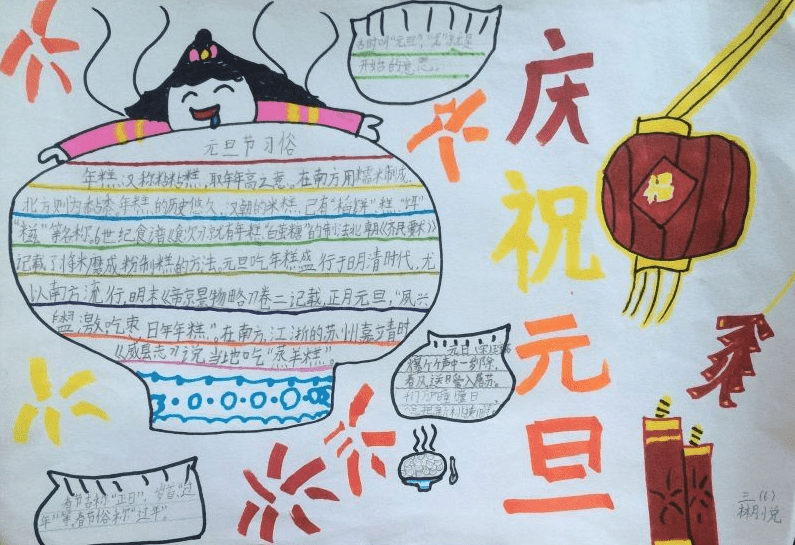 古时叫"元旦","元"就是
开始的意思。
庆祝元旦
福
元旦节习俗
年糕又称粘粘糕,取年年高之意。在南方用糯米制成,
北方则为粘黍。年糕的历史悠久,汉朝的米糕,已有"稻饼"糕"饵"
"糍"等名称。6世纪食谱《食次》就有年糕"白茧糖"的制法北朝《齐民要术》
记载了将米磨成粉制糕的方法。元旦吃年糕盛行于明清时代,尤
以南方流行,明末《帝京景物略》卷二记载,正月元旦,"夙兴
盥漱吃枣日年年糕"。在南方,江浙的苏州嘉靖时
《威县志》说当地吃"蒸羊糕"。
元日
爆竹声中一岁除,
春风送日暖入屠苏。
日
总把新
春节古称"正日"
年"等,春节俗称"过年"。
三(6)
林刖悦